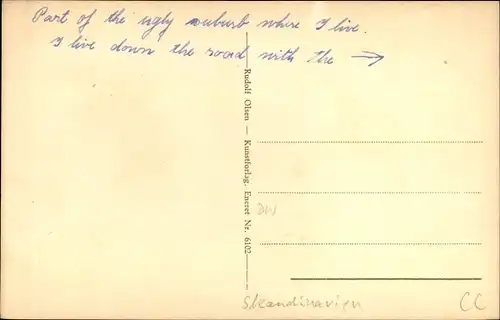 Part of the ugly suburb where I live.
I live down the road with the →
Rudolf Olsen — Kunstforlag. Eneret Nr. 6102
DW
Skandinavien
CC